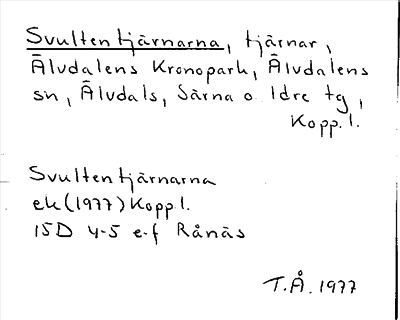 Svultentjärnarna, tjärnar,
Älvdalens Kronopark, Älvdalens
sn, Älvdals, Särna o. Idre tg,
Kopp.l.
Svultentjärnarna
ek(1977)Kopp.l.
15D 4-5 e-f Rånäs
T.Å. 1977